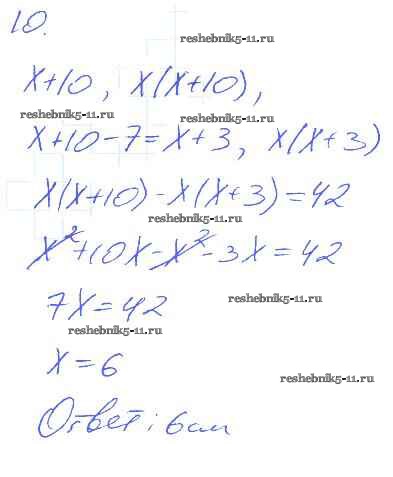 10.
reshebnik5-11.ru
x+10, x(x+10),
reshebnik5-11.ru
reshebnik5-11.ru
x+10-7=x+3, x(x+3)
x(x+10)-x(x+3)=42
reshebnik5-11.ru
x²+10x-x²-3x=42
7x=42
reshebnik5-11.ru
reshebnik5-11.ru
x=6
reshebnik5-11.ru
Ответ: 6см